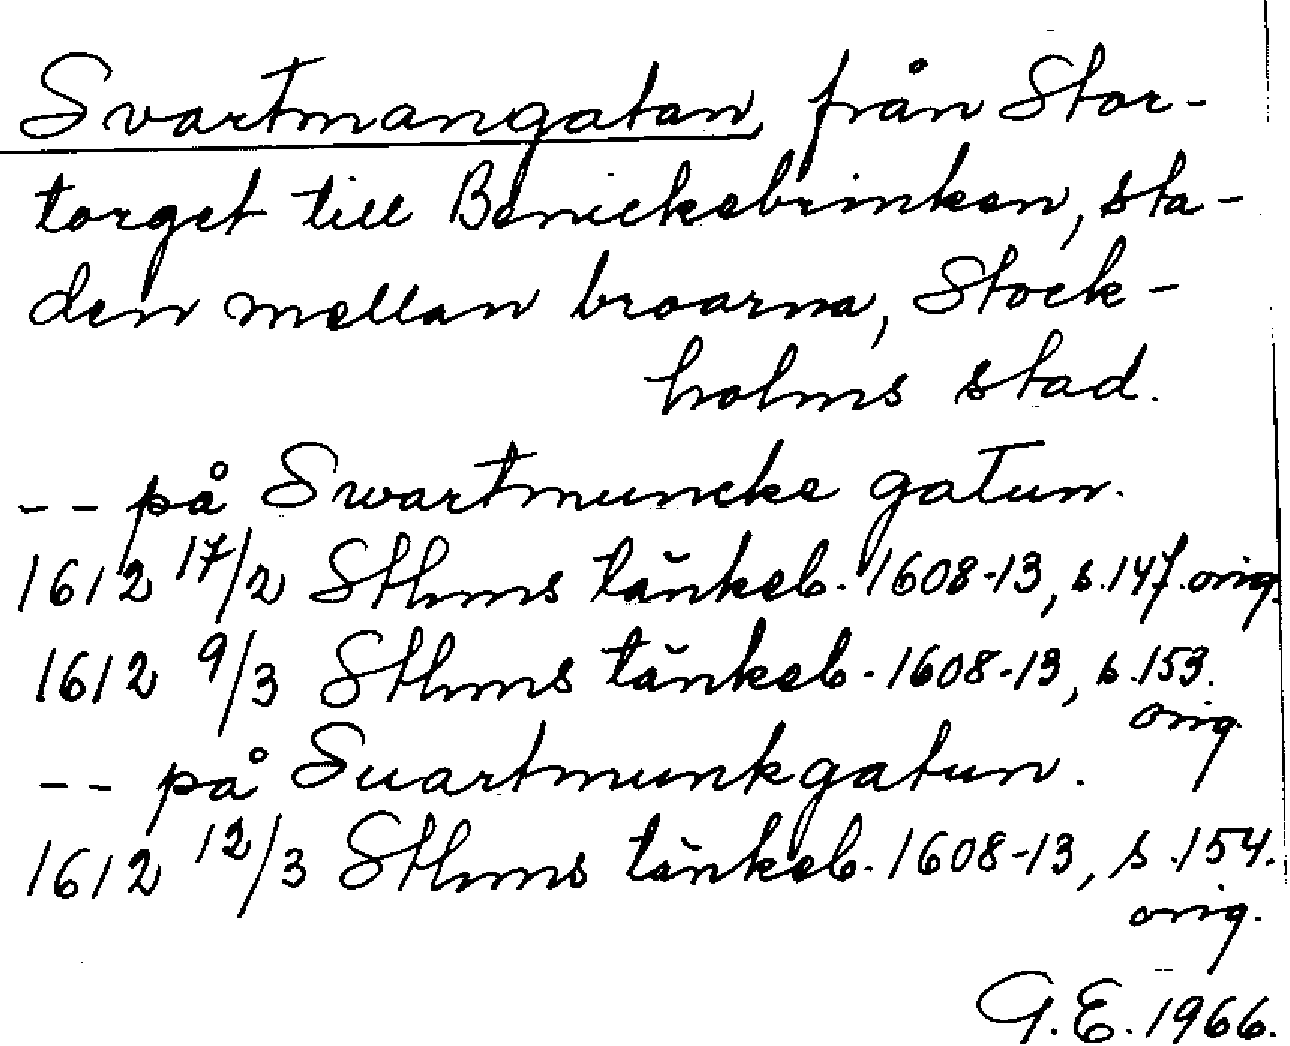 Svartmangatan, från Stor-
torget till Benickebrinken, sta-
den mellan broarna, Stock-
holms stad.
-- på Swartmuncke gatun.
1612 17/2 Sthms tänkeb. 1608-13, s. 147. orig.
1612 9/3 Sthms tänkeb. 1608-13, s. 153.
orig.
-- på Suartmunkgatun.
1612 12/3 Sthms tänkeb. 1608-13, s. 154.
orig.
G.E. 1966.